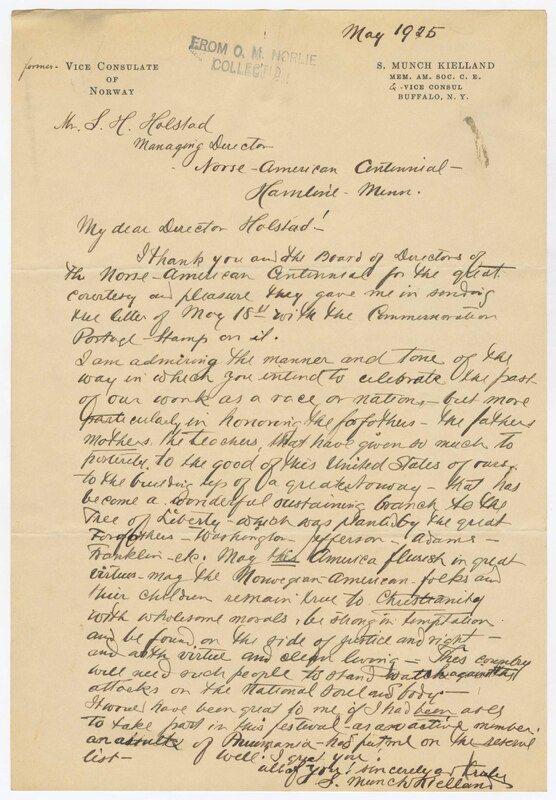 May 1925
FROM O. M. NORLIE
COLLECTION
former - VICE CONSULATE
OF
NORWAY
S. MUNCH KIELLAND
MEM. AM. SOC. C. E.
VICE CONSUL
BUFFALO, N. Y.
Mr. S. H. Holstad
Managing Director
Norse-American Centennial -
Hamline - Minn.
My dear Director Holstad!
I thank you and the Board of Directors of
the Norse-American Centennial for the great
courtesy and pleasure they gave me in sending
the letter of May 18th with the Commemoration
Postage-Stamp on it.
I am admiring the manner and tone of the
way in which you intend to celebrate the past
of our work as a race or nation, - but more
particularly in honoring the fofothers - the fathers
mothers, the teachers, that have given so much to
posterity, to the good of this United States of ours,
to the building up of a great Norway - that has
become a wonderful sustaining branch to the
Tree of Liberty - which was planted by the great
Forfothers - Washington - Jefferson - Adams -
Franklin - etc. May this America flurish in great
virtues - may the Norwegian American folks and
their children remain true to Christianity
with wholesome morals, be strong in temptation
and be found on the side of justice and right -
and with virtue and clean living - This country
will need such people to stand watch against
attacks on the National soul and body -
It would have been great to me, if I had been able
to take part in this festival - as an active member.
an attack of Pneumonia - has put me on the reserve
list - Well! I greet you
all of you! sincerely and truly
S. Munch Kielland